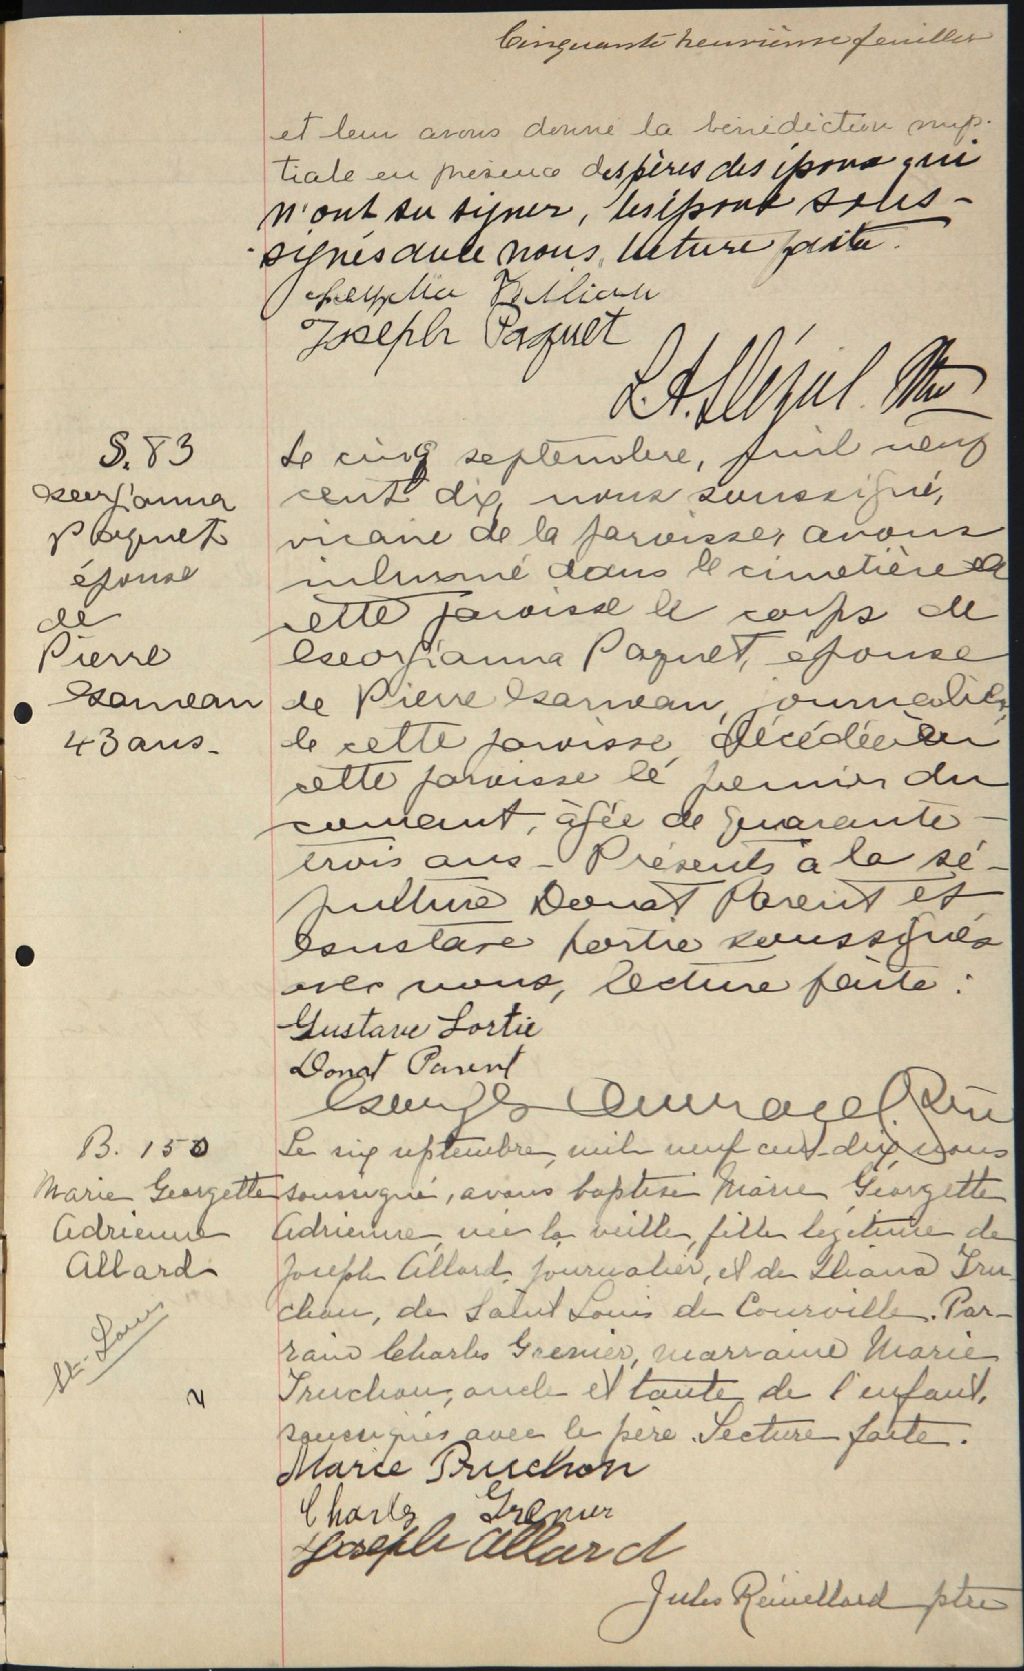 Cinquante neuvième feuillet
et leur avons donné la bénédiction nup-
tiale en présence des pères des époux qui
n'ont su signer, les époux sous-
signés avec nous, lecture faite.
Joseph Paquet
S. 83
Georgianna
Paquet
épouse
de
Pierre
Garneau
43 ans-
Le cinq septembre, mil neuf
cent dix, nous soussigné,
vicaire de la paroisse, avons
inhumé dans le cimetière de
cette paroisse le corps de
Georgianna Paquet, épouse
de Pierre Garneau, journalier,
de cette paroisse, décédée en
cette paroisse le premier du
courant, âgée de quarante-
trois ans- Présents à la sé-
pulture Donat Parent et
Gustave Lortie soussignés
avec nous, lecture faite:
Gustave Lortie
Donat Parent
B. 150
Marie Georgette
Adrienne
Allard
St-Louis
2
Le six septembre, mil neuf cent dix, nous
soussigné, avons baptisé Marie Géorgette
Adrienne, née la veille, fille légitime de
Joseph Allard, journalier, et de Diana Tru-
chon, de Saint Louis de Courville. Par-
rain Charles Grenier, marraine Marie
Truchon, oncle et tante de l'enfant,
soussignés avec le père. Lecture faite.
Marie Truchon
Charles Grenier
Joseph Allard
Jules Rémillard ptre